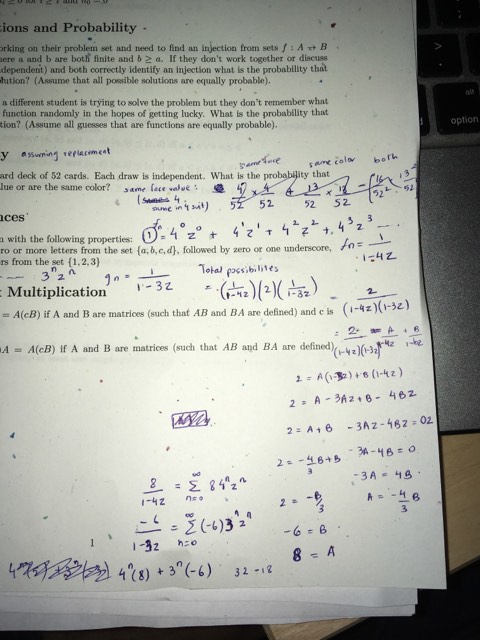 tions and Probability
orking on their problem set and need to find an injection from sets f : A → B
ere a and b are both finite and b ≥ a. If they don't work together or discuss
dependent) and both correctly identify an injection what is the probability that
lution? (Assume that all possible solutions are equally probable).
a different student is trying to solve the problem but they don't remember what
function randomly in the hopes of getting lucky. What is the probability that
tion? (Assume all guesses that are functions are equally probable).
y assuming replacement
same face same color both
ard deck of 52 cards. Each draw is independent. What is the probability that
lue or are the same color? same face value:
same in 4 suit)
nces
① = 4⁰z⁰ + 4¹z¹ + 4²z² + 4³z³ ...
n with the following properties:
ro or more letters from the set {a, b, c, d}, followed by zero or one underscore,
fn = 1/(1-4z)
rs from the set {1, 2, 3}
3ⁿzⁿ gn = 1/(1-3z) Total possibilites
= (1/(1-4z))(2)(1/(1-3z)) = 2/((1-4z)(1-3z))
t Multiplication
= A(cB) if A and B are matrices (such that AB and BA are defined) and c is
= 2/((1-4z)(1-3z)) = A/(1-4z) + B/(1-3z)
)A = A(cB) if A and B are matrices (such that AB and BA are defined)
2 = A(1-3z) + B(1-4z)
2 = A - 3Az + B - 4Bz
2 = A + B -3Az - 4Bz = 0z
2 = -4/3 B + B -3A - 4B = 0
-3A = 4B
2 = -B/3 A = -4/3 B
-6 = B
8 = A
8/(1-4z) = Σ 8 4ⁿzⁿ
n=0
∞
-6/(1-3z) = Σ (-6) 3ⁿzⁿ
n=0
1
4ⁿ(8) + 3ⁿ(-6) 32 - 18
option